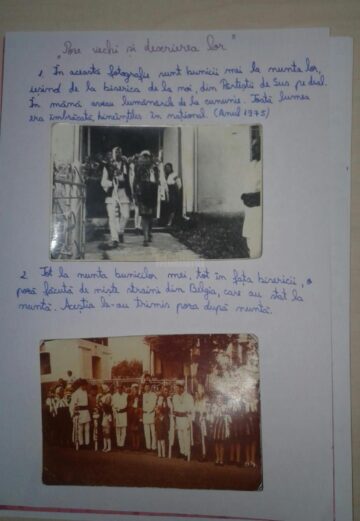 "Poze vechi și descrierea lor"
1. În această fotografie sunt bunicii mei la nunta lor,
ieșind de la biserica de la noi, din Pârteștii de Sus pe deal.
În mână aveau lumânările de la cununie. Toată lumea
era îmbrăcată, bineînțeles în național. (Anul 1975)
2. Tot la nunta bunicilor mei, tot în fața bisericii, o
poză făcută de niște străini din Belgia, care au stat la
nuntă. Aceștia le-au trimis poza după nuntă.